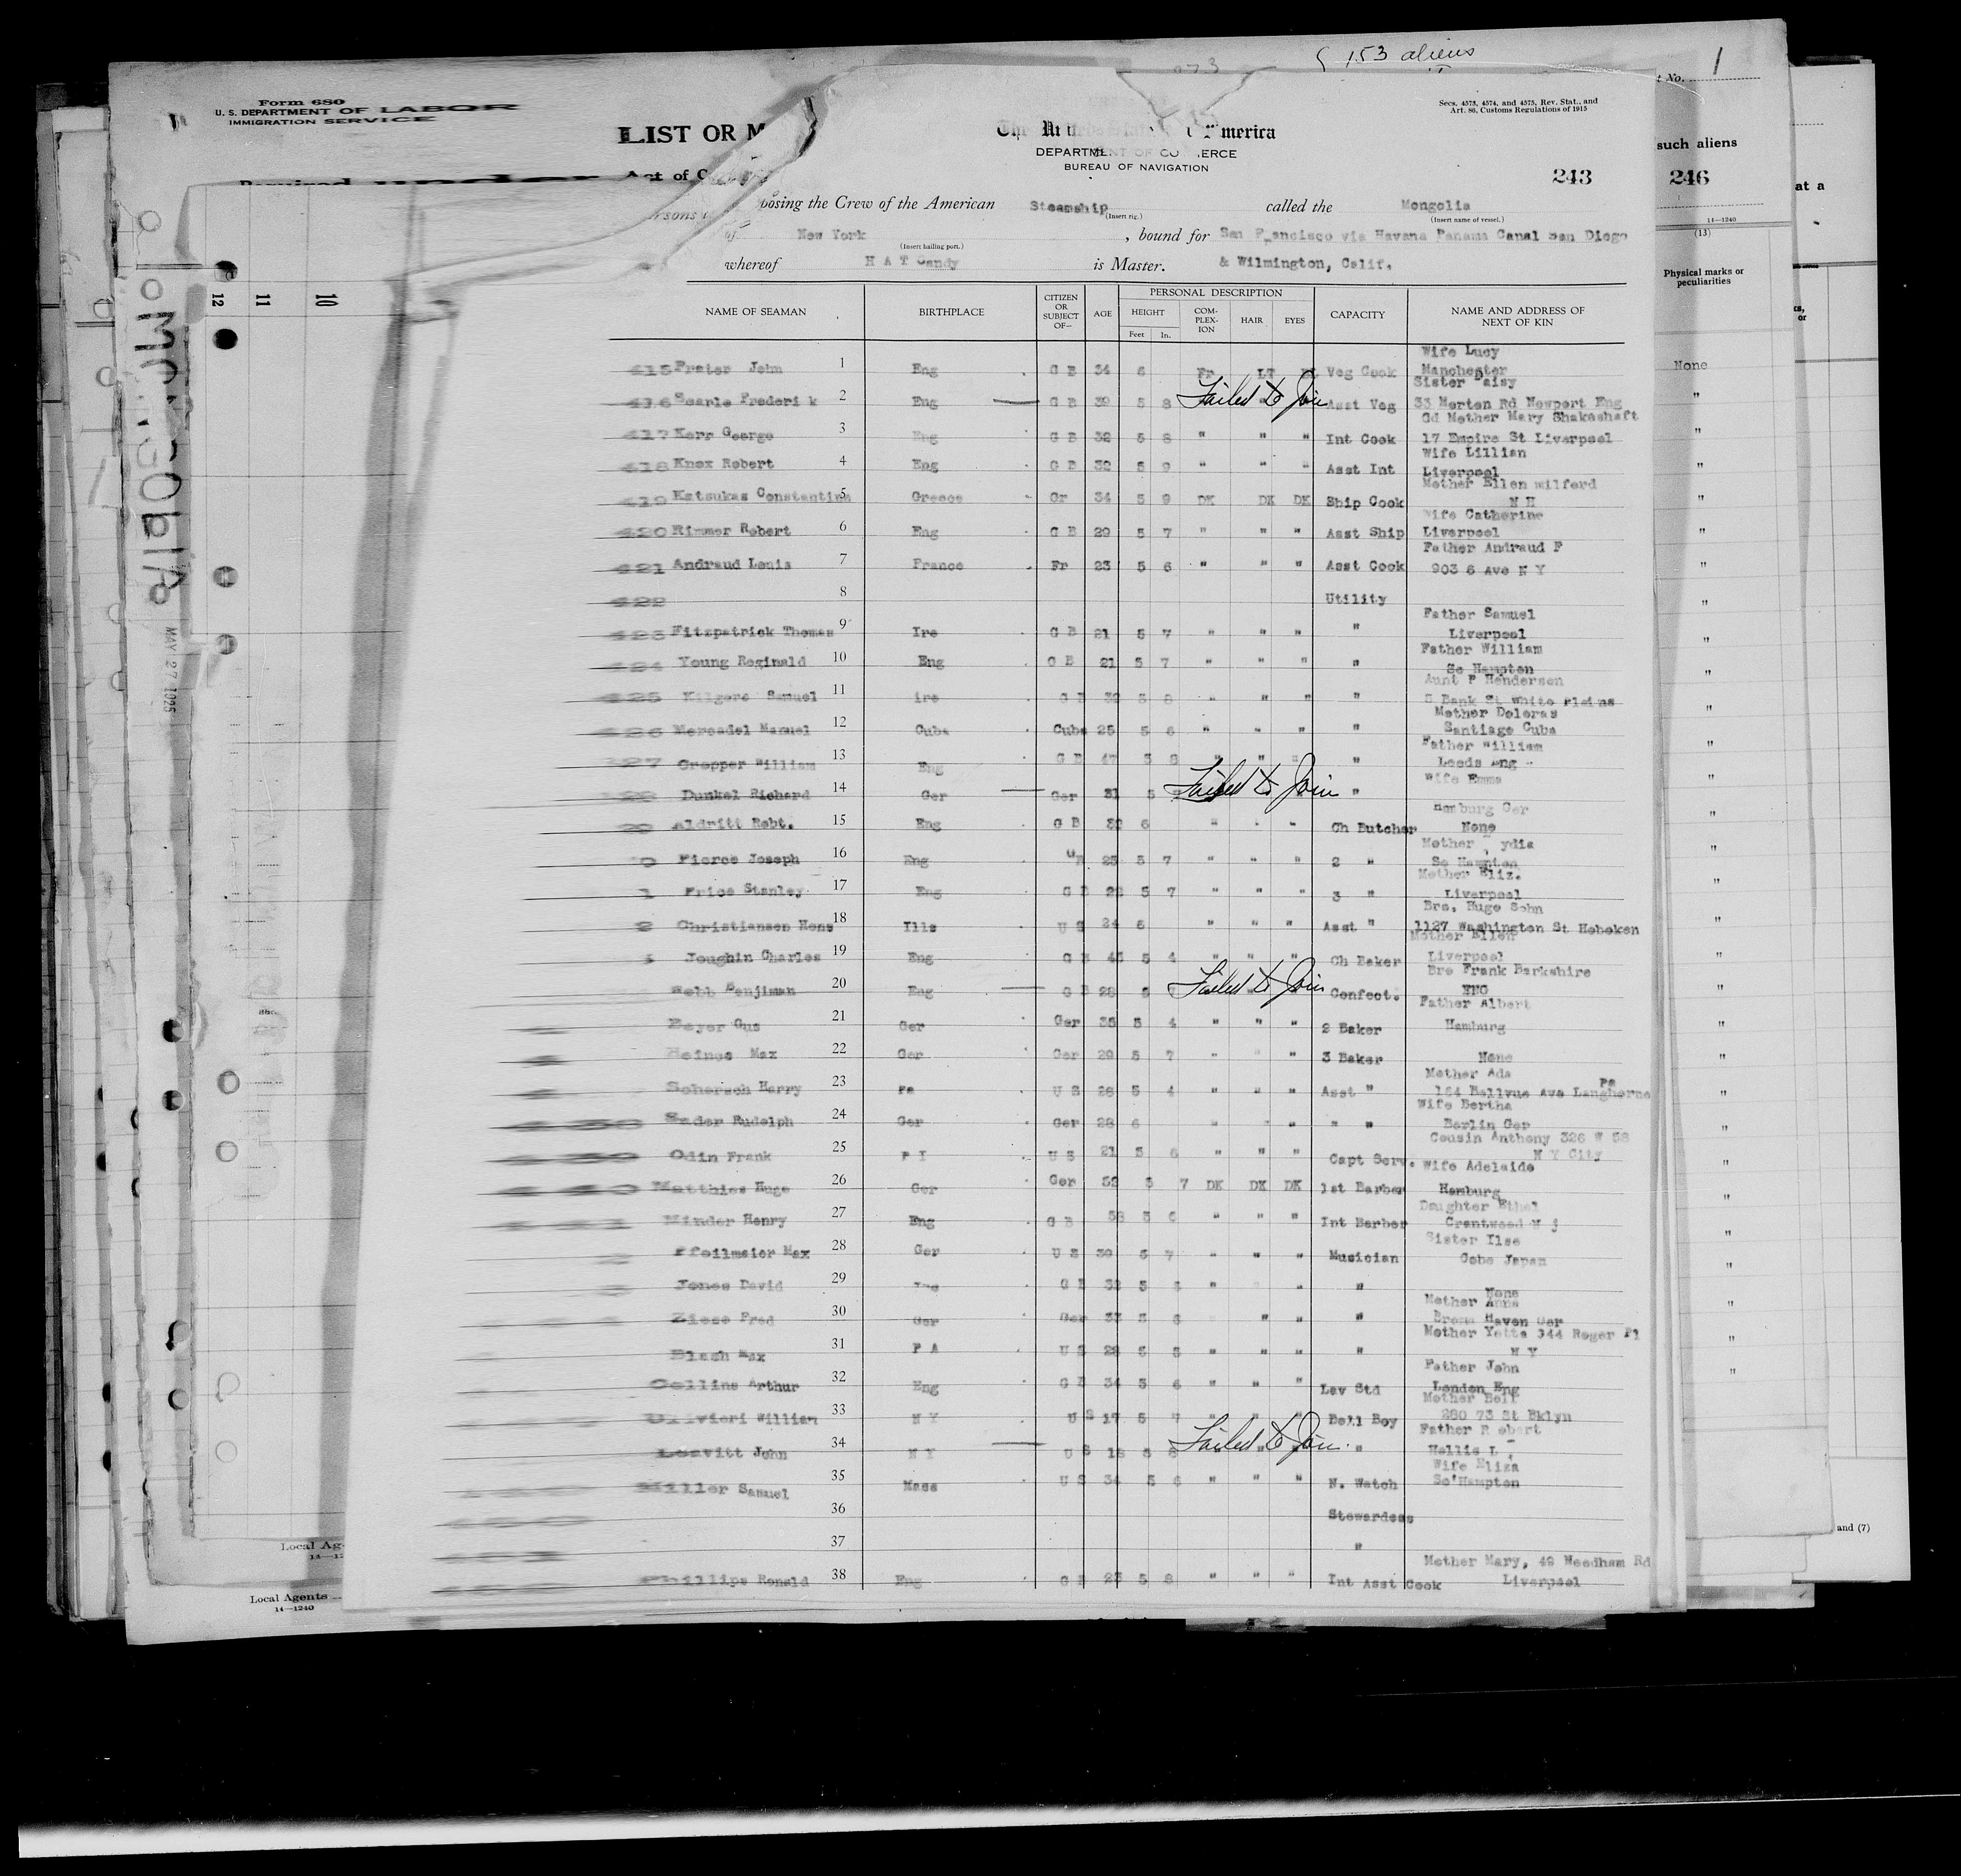 153 aliens
1
Form 680
U. S. DEPARTMENT OF LABOR
IMMIGRATION SERVICE
Secs. 4573, 4574, and 4575, Rev. Stat., and
Art. 86, Customs Regulations of 1915
LIST OR M
merica
DEPARTME
BUREAU OF NAVIGATION
such aliens
Act of
243
246
at a
14—1240
posing the Crew of the American Steamship called the Mongolia
(Insert rig.) (Insert name of vessel.)
of New York , bound for San Francisco via Havana Panama Canal San Diego
(Insert hailing port.)
whereof H A T Candy is Master. & Wilmington, Calif.
(13)
Physical marks or
peculiarities
12 11 10
MAY 27 1925
NAME OF SEAMAN BIRTHPLACE CITIZEN OR SUBJECT OF— AGE PERSONAL DESCRIPTION HEIGHT Feet In. COM-PLEX-ION HAIR EYES CAPACITY NAME AND ADDRESS OF NEXT OF KIN
Wife Lucy
415 Frater John 1 Eng G B 34 6 Fr LT Veg Cook Manchester None
Sister Daisy
416 Searle Frederi k 2 Eng G B 39 5 8 Failed to Join Asst Veg 33 Morton Rd Newport Eng "
Gd Mother Mary Shakeshaft
417 Kerr George 3 Eng G B 32 5 8 " " " Int Cook 17 Empire St Liverpool "
Wife Lillian
418 Knox Robert 4 Eng G B 32 5 9 " " " Asst Int Liverpool "
Mother Ellen Milford
419 Katsukas Constantine 5 Greece Gr 34 5 9 DK DK DK Ship Cook N H "
Wife Catherine
420 Rimmer Robert 6 Eng G B 29 5 7 " " " Asst Ship Liverpool "
Father Andraud F
421 Andraud Louis 7 France Fr 23 5 6 " " " Asst Cook 903 6 Ave N Y "
422 8 Utility "
Father Samuel
423 Fitzpatrick Thomas 9 Ire G B 21 5 7 " " " " Liverpool "
Father William
424 Young Reginald 10 Eng G B 21 5 7 " " " " So Hampton "
Aunt P Henderson
425 Kilgore Samuel 11 ire G B 32 5 8 " " " " 8 Bank St White Plains "
Mother Doloras
426 Mercadel Manuel 12 Cuba Cuba 25 5 6 " " " " Santiago Cuba "
Father William
27 Cropper William 13 Eng G B 47 5 8 " " " " Leeds Eng "
Wife Emma
Dunkel Richard 14 Ger Ger 31 5 Failed to Join " Hamburg Ger "
Aldritt Robt. 15 Eng G B 32 6 " " " Ch Butcher None "
Mother ydia
Pierce Joseph 16 Eng G B 25 5 7 " " " 2 " So Hampton "
Mother Eliz.
Price Stanley 17 Eng G B 22 5 7 " " " 3 " Liverpool "
Bro. Hugo Sohn
Christiansen Hans 18 Ills U S 24 6 " " " Asst " 1127 Washington St Hoboken "
Mother Ellen
Joughin Charles 19 Eng G B 45 5 4 " " " Ch Baker Liverpool "
Bro Frank Barkshire
Webb Benjiman 20 Eng G B 28 5 Failed to Join Confect. ENG "
Father Albert
Bayer Gus 21 Ger Ger 35 5 4 " " " 2 Baker Hamburg "
Heines Max 22 Ger Ger 29 5 7 " " " 3 Baker None "
Mother Ada
Schorsch Harry 23 Pa U S 28 5 4 " " " Asst " 164 Bellvue Ave Langhorne Pa "
Wife Bertha
Sader Rudolph 24 Ger Ger 28 6 " " " " " Berlin Ger "
Cousin Anthony 326 W 58
Odin Frank 25 P I U S 21 5 6 " " " Capt Serv. N Y City "
Wife Adelaide
Matthies Hugo 26 Ger Ger 32 5 7 DK DK DK 1st Barber Hamburg "
Daughter Ethel
Minder Henry 27 Eng G B 58 5 6 " " " Int Barber Grantwood N j "
Sister Ilse
Pfeilmaier Max 28 Ger U S 30 5 7 " " " Musician Gobe Japan "
Jones David 29 G B 32 5 " " " None "
Mother Anna
Ziese Fred 30 Ger Ger 33 5 6 " " " Brem Haven Ger "
Mother Yetta 344 Roger Pl
Blach Max 31 P A U S 28 5 8 " " " " N Y "
Father John
Collins Arthur 32 Eng G B 34 5 6 " " " Lav Std London Eng "
Mother Bell
Olivieri William 33 N Y U S 17 5 7 " " " Bell Boy 280 73 St Bklyn
Father R obert
Leavitt John 34 N Y U S 18 5 8 Failed to Join. " Hollis L I
Wife Eliza
Miller Samuel 35 Mass U S 34 5 6 " " " N. Watch So'Hampton
36 Stewardess
37 "
Mother Mary, 49 Needham Rd
Phillips Ronald 38 Eng G B 23 5 8 " " " Int Asst Cook Liverpool
and (7)
Local Ag
Local Agents
14—1240